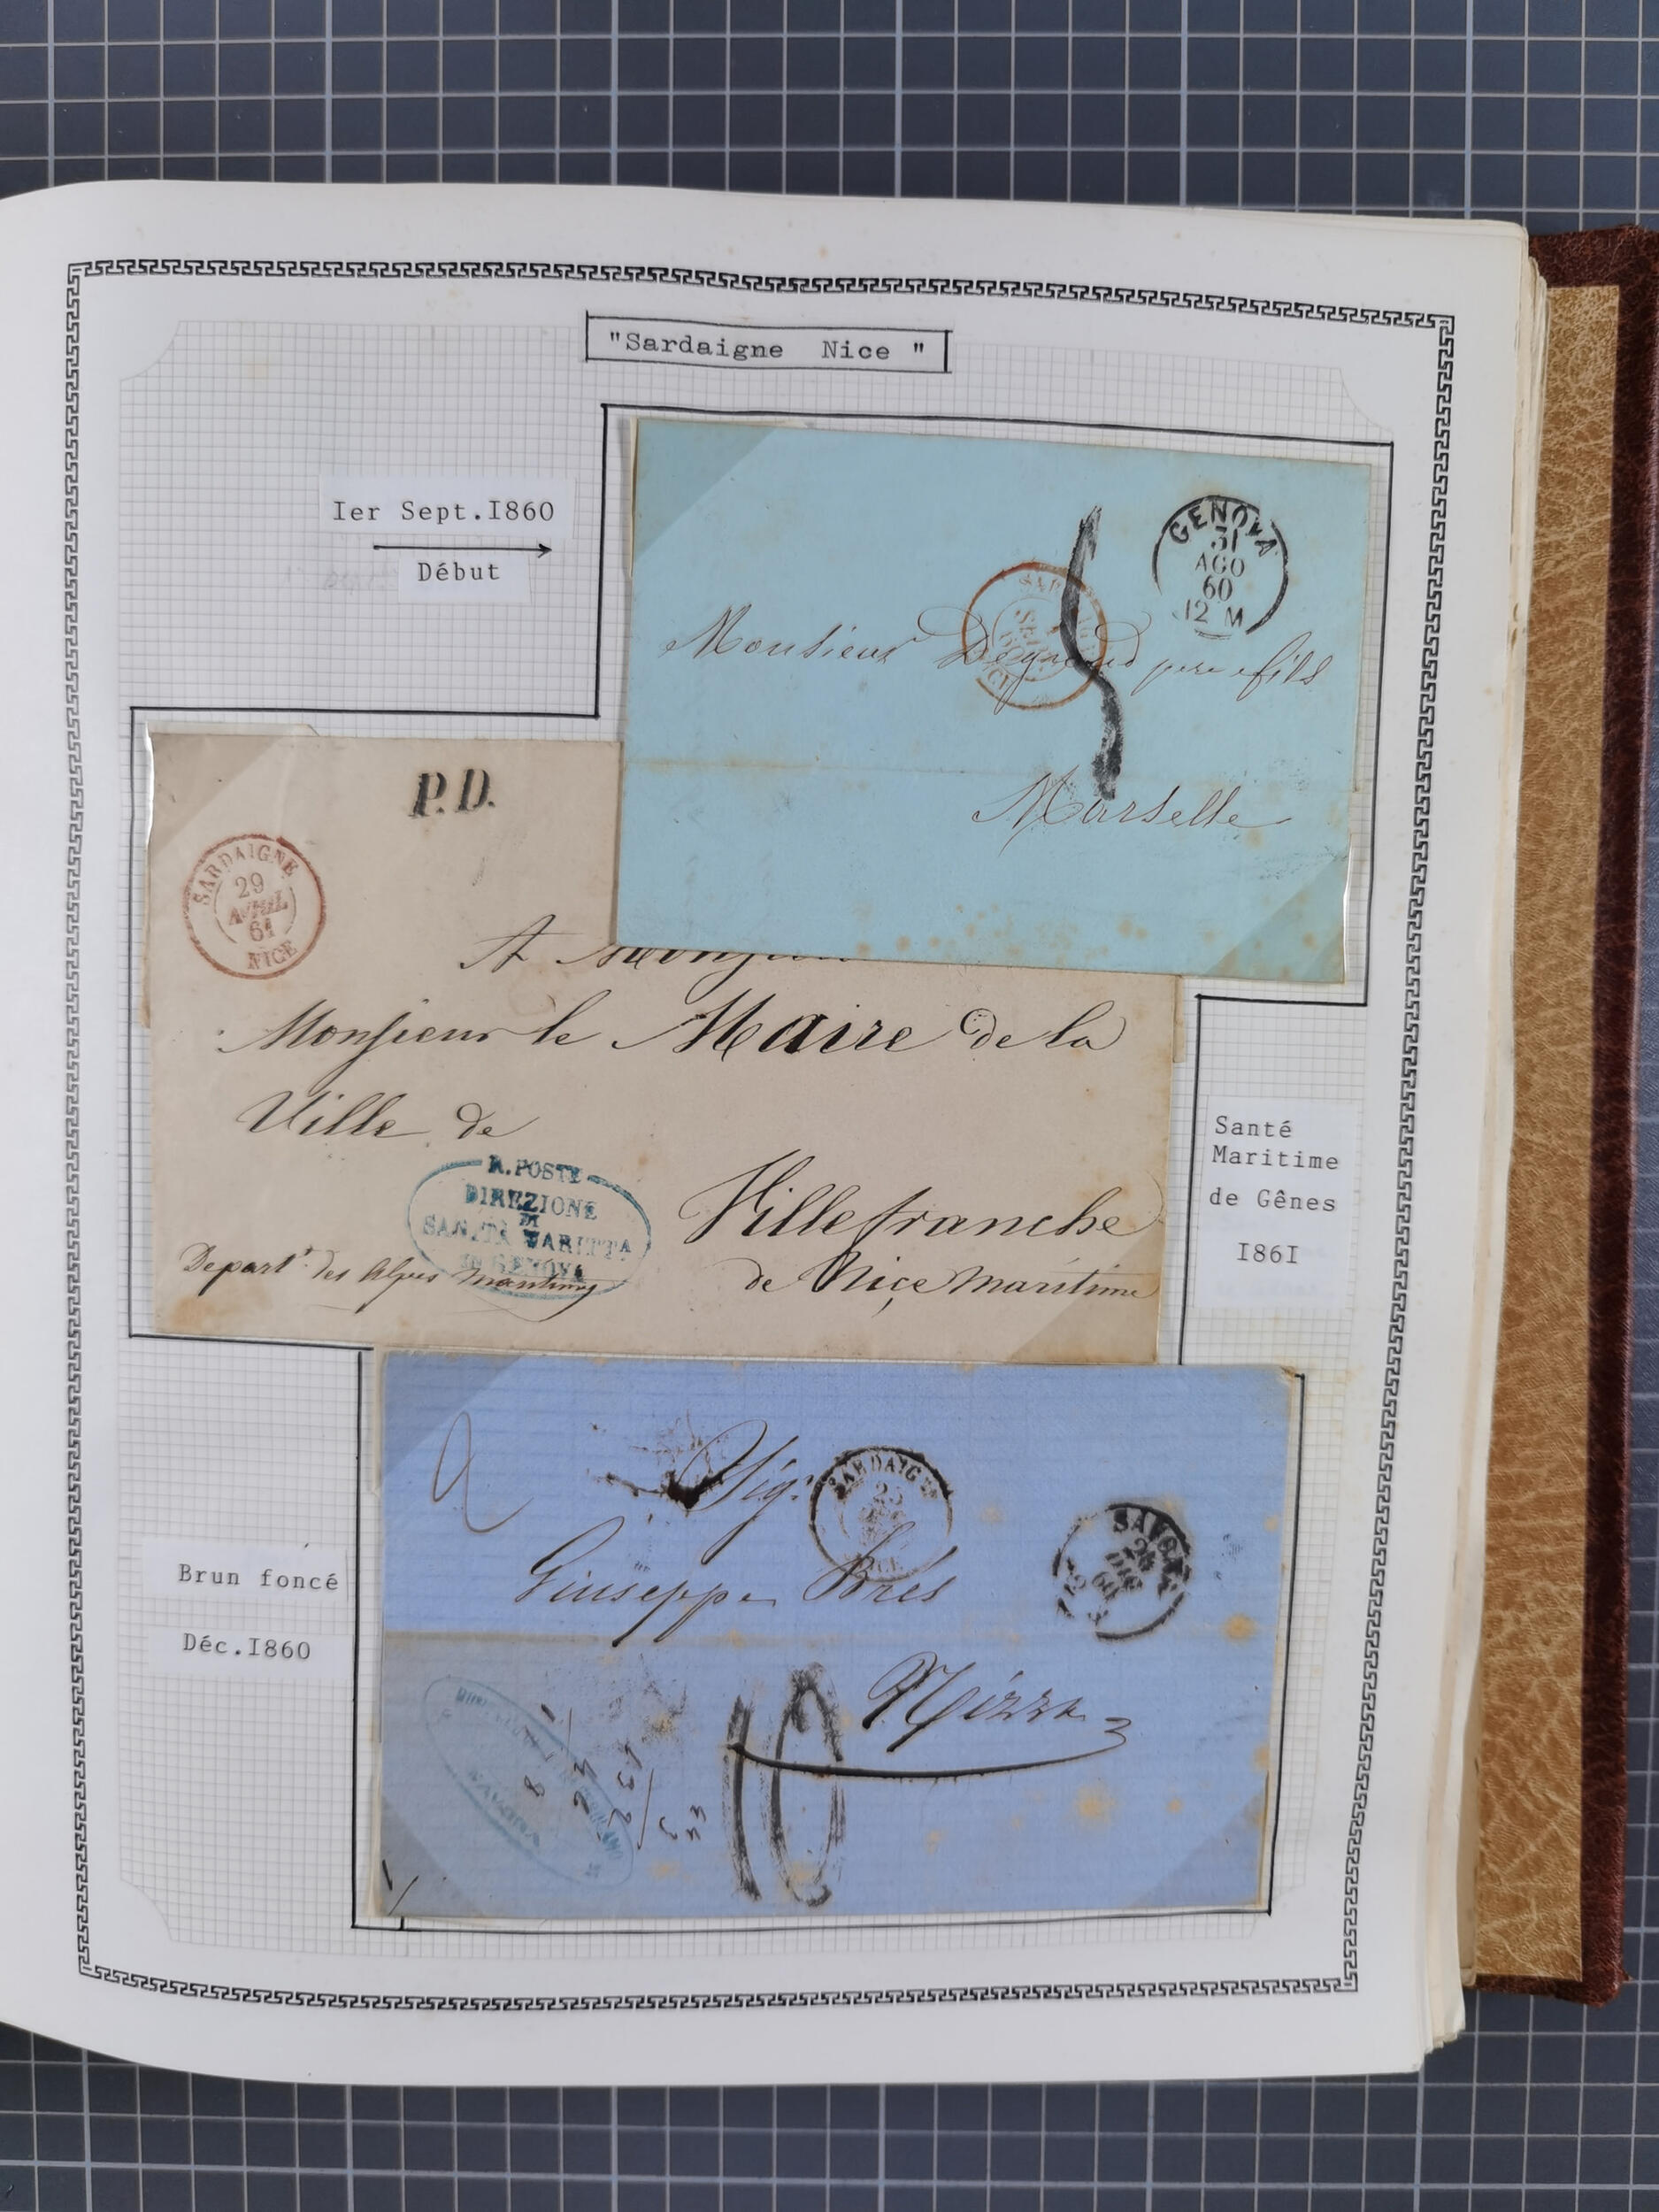 "Sardaigne Nice "
Ier Sept.I860
Début
GENOVA
31
AGO
60
12 M
Monsieur père & fils
Marselle
P.D.
SARDAIGNE
29
AVRIL
61
NICE
A
Monsieur le Maire de la
Ville de
Villefranche
de Nice maritime
R. POSTE
DIREZIONE
DI
SANITÀ MARITTA
IN GENOVA
Depart.t des Alpes maritimes
Santé
Maritime
de Gênes
I86I
Brun foncé
Déc.I860
2
Sig.r
Giuseppe Brès
Nizza
SARDAIGNE
25
10